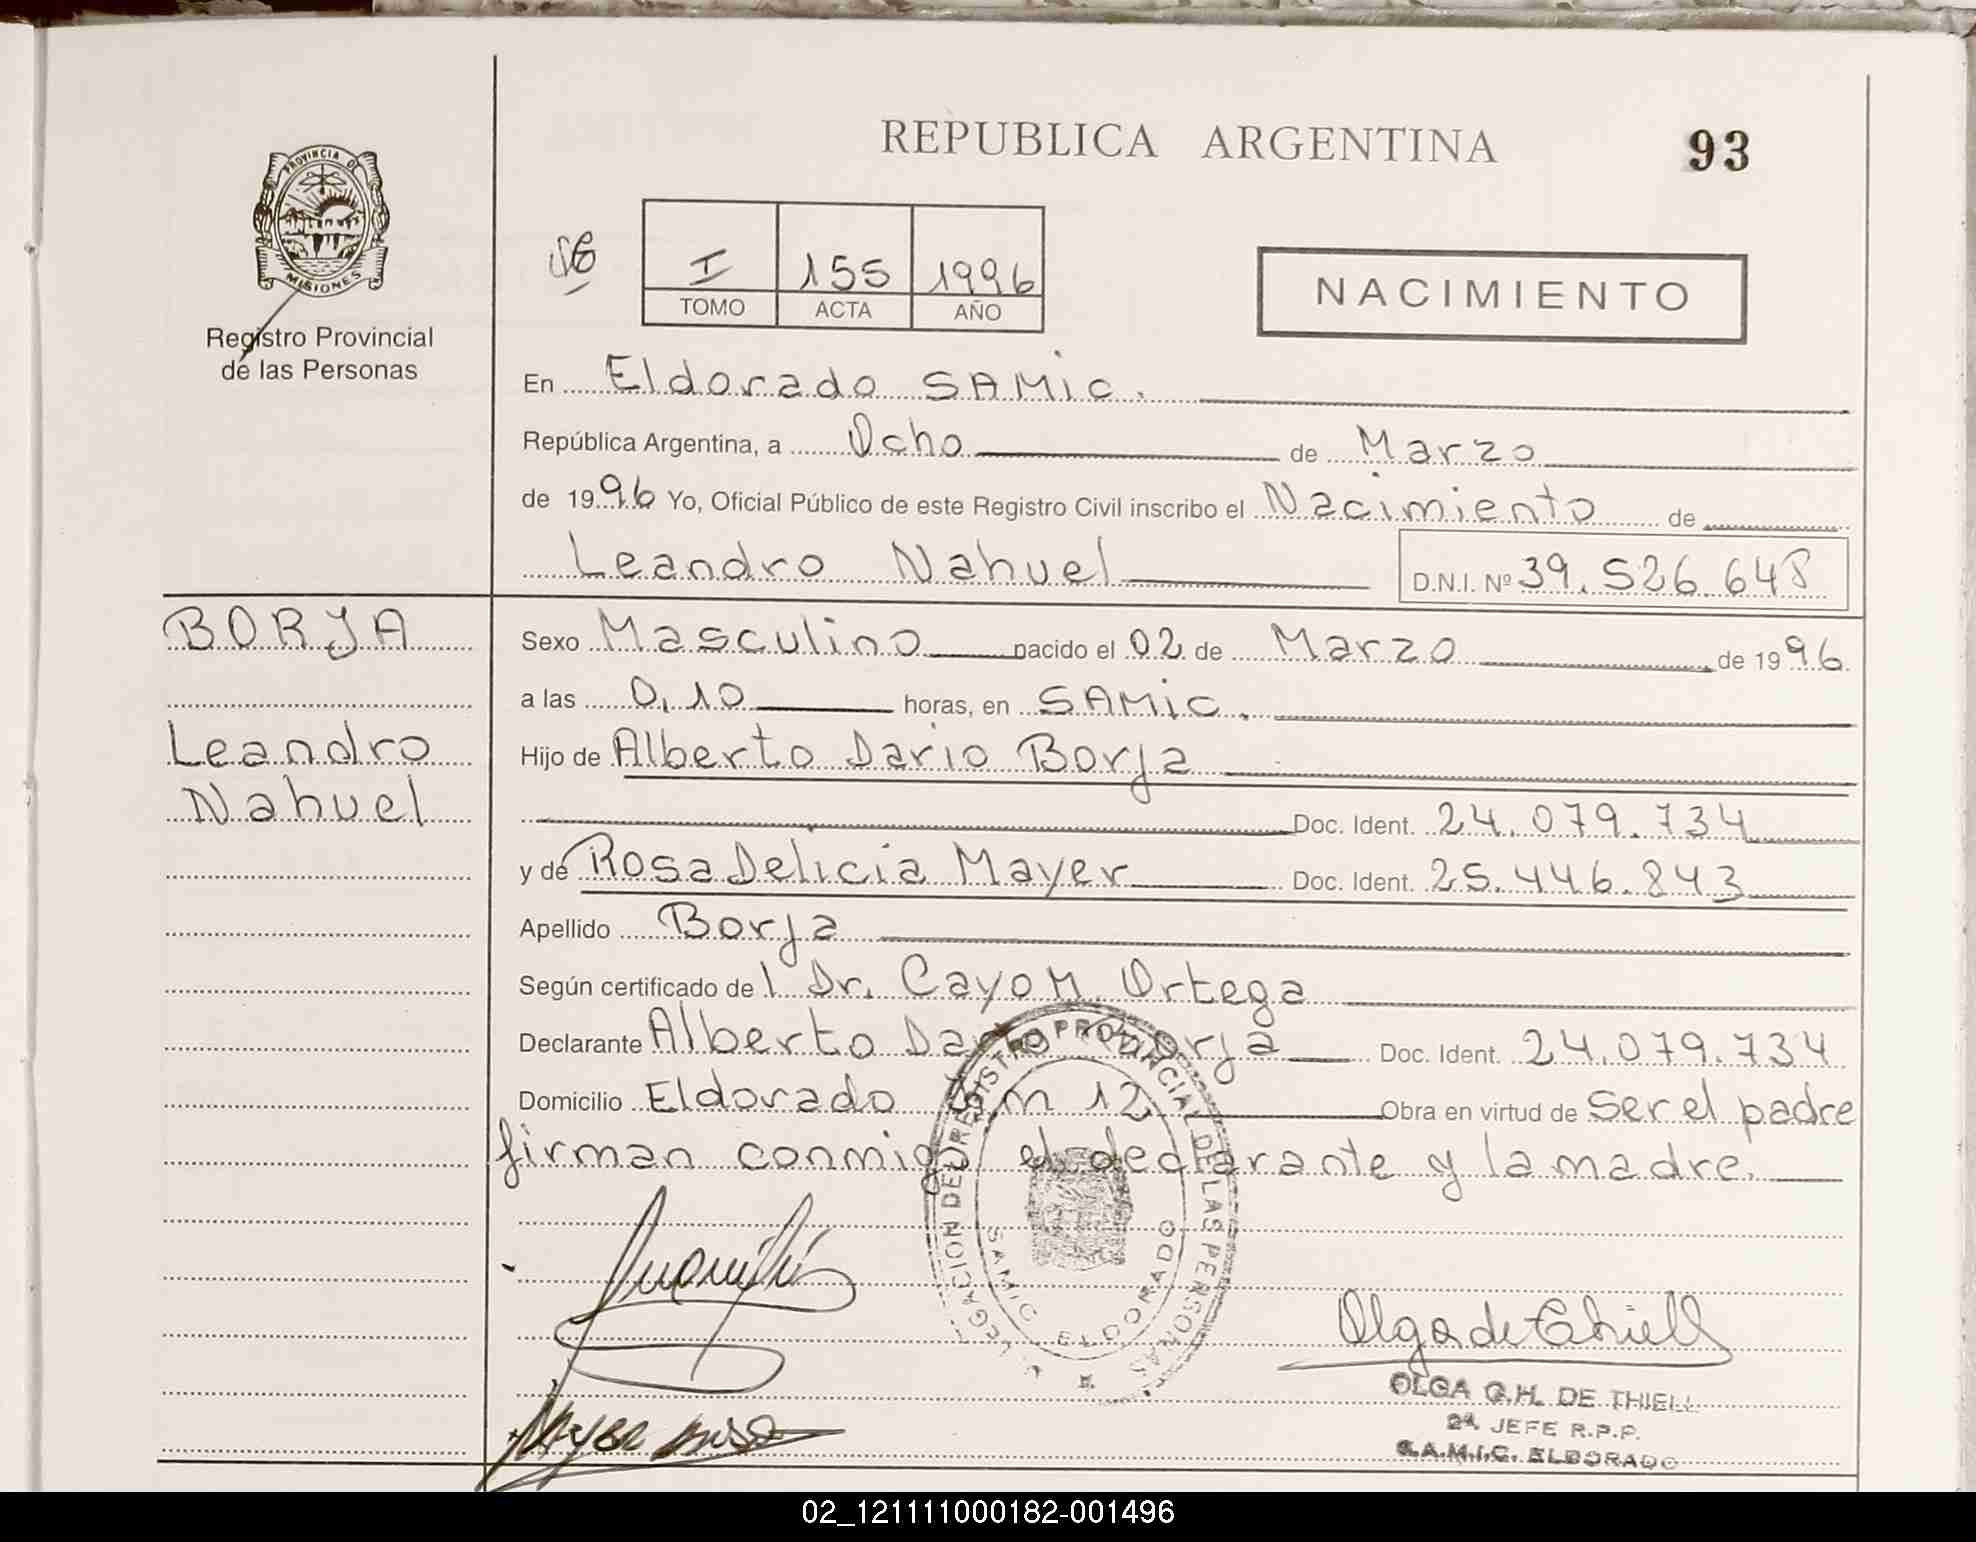 REPUBLICA ARGENTINA
93
PROVINCIA DE
MISIONES
Registro Provincial
de las Personas
I 155 1996
TOMO ACTA AÑO
NACIMIENTO
En Eldorado SAMIC.
República Argentina, a Ocho de Marzo
de 1996 Yo, Oficial Público de este Registro Civil inscribo el Nacimiento de
Leandro Nahuel D.N.I. Nº 39.526.648
BORJA
Leandro
Nahuel
Sexo Masculino nacido el 02 de Marzo de 1996
a las 0,10 horas, en SAMIC.
Hijo de Alberto Dario Borja
Doc. Ident. 24.079.734
y de Rosa Delicia Mayer Doc. Ident. 25.446.843
Apellido Borja
Según certificado de l Dr. Cayo M. Ortega
Declarante Alberto Dario Borja Doc. Ident. 24.079.734
Domicilio Eldorado Km 12 Obra en virtud de Ser el padre
firman conmigo el declarante y la madre.
DELEGACION DEL REGISTRO PROVINCIAL DE LAS PERSONAS
SAMIC ELDORADO
Olga de Thiell
Mayer Rosa
OLGA G.H. DE THIELL
2ª JEFE R.P.P.
S.A.M.I.C. ELDORADO
02_121111000182-001496